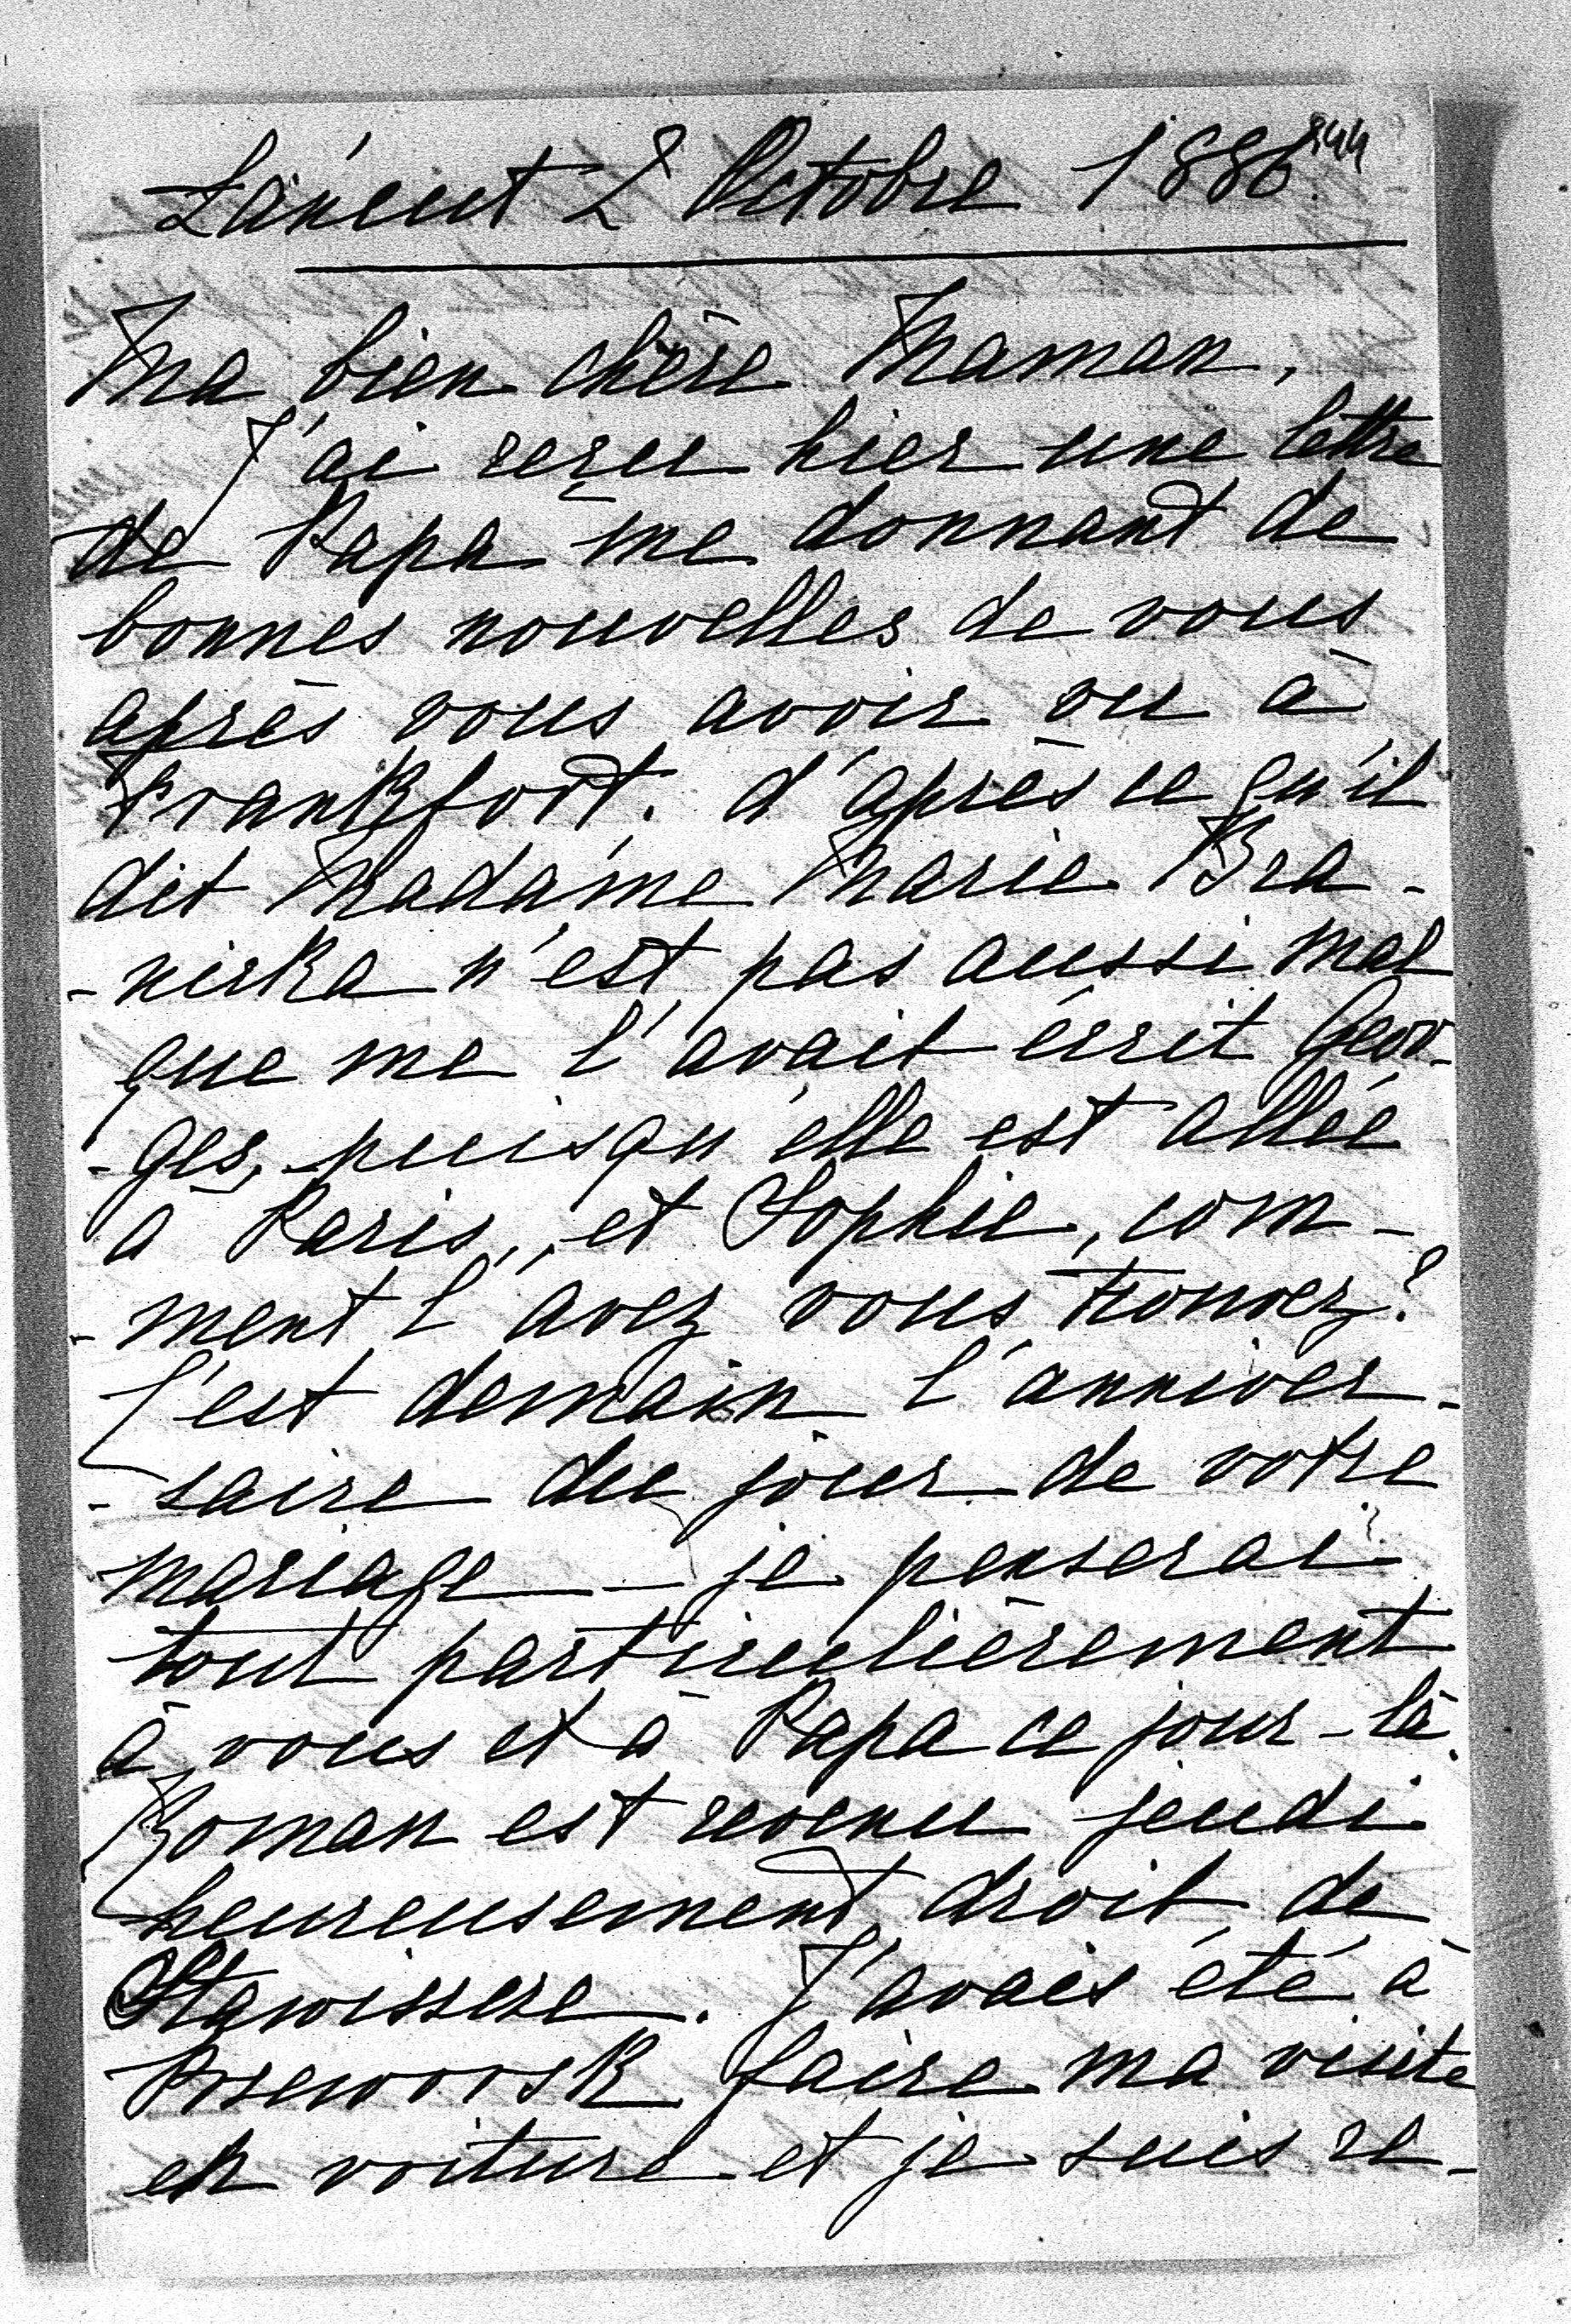 Lancut 2 Octobre 1886.
Ma bien chère Maman,
J'ai reçu hier une lettre
de Papa me donnant de
bonnes nouvelles de vous
après vous avoir vu à
Frankfort. d'après ce qu'il
dit Madame Marie Bra-
-nicka n'est pas aussi mal
que me l'avait écrit Geor-
-ges, puisqu'elle est allée
à Paris, et Sophie, com-
-ment l'avez vous trouvez?
C'est demain l'anniver-
-saire du jour de votre
mariage — je penserai
tout particulièrement
à vous et à Papa ce jour-là.
Roman est revenu jeudi
heureusement droit de
Stawiszcze. J'avais été à
Przeworsk faire ma visite
en voiture et je suis re-